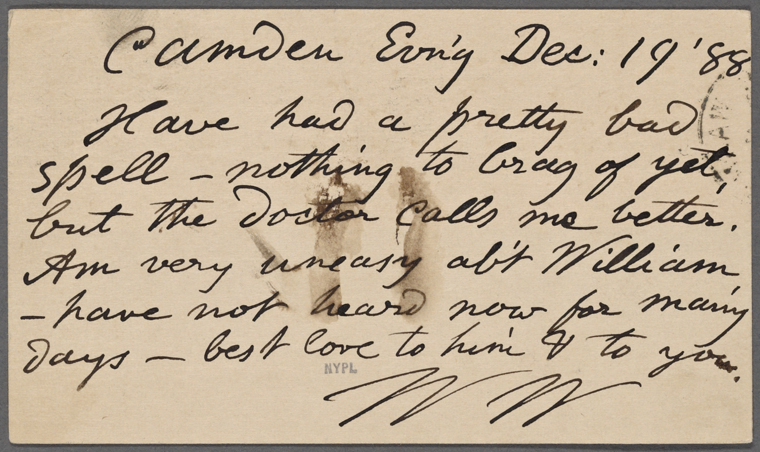 Camden Evn'g Dec: 19 '88
Have had a pretty bad
spell – nothing to brag of yet,
but the doctor calls me better.
Am very uneasy ab't William
– have not heard now for many
days – best love to him & to you.
NYPL
W W